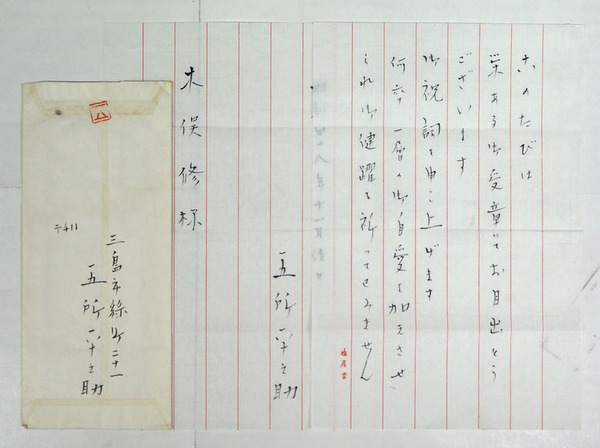 このたびは
栄ある御受章にてお目出とう
ございます
御祝詞を申し上げます
何卒一層の御自愛を加えさせ
られ御健躍を祈ってやみません
五所平之助
木俣修様
〒411
三島市緑町二十一
五所平之助